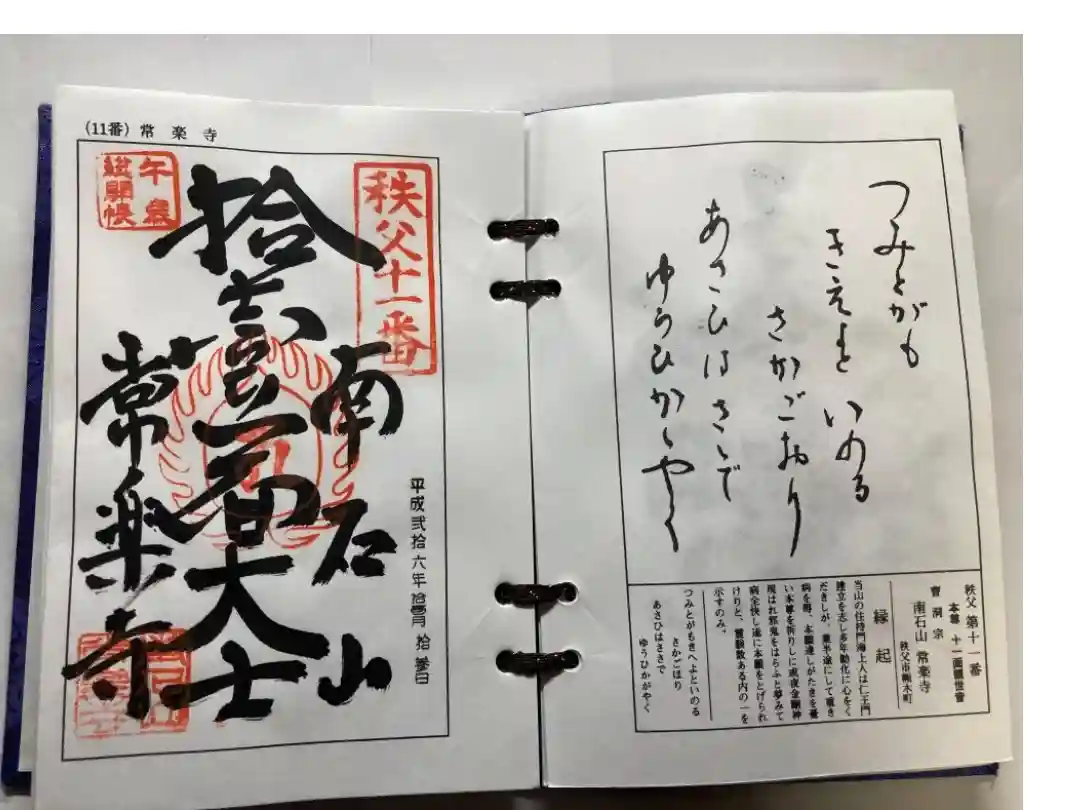 (11番) 常楽寺
秩父十一番
午歳
総開帳
平成弐拾六年 拾壹月 拾参日
南石山
拾壹面大士
常楽寺
つみとがも
きえよといのる
さかごおり
あさひはさゝで
ゆうひかゝやく
秩父 第十一番
本尊 十一面観世音
曹洞宗
南石山 常楽寺
秩父市熊木町
縁起
当山の住持門海上人は仁王門
建立を志し多年勧化に心をく
だきしが、業半途にして重き
病を得、本願達しがたきを憂
い本尊を祈りしに或夜金剛神
現はれ邪鬼をはらふと夢みて
病全快し遂に本願をとげられ
けりと、霊験数ある内の一を
示すのみ。
つみとがもきへよといのる
さかごほり
あさひはささで
ゆうひかがやく